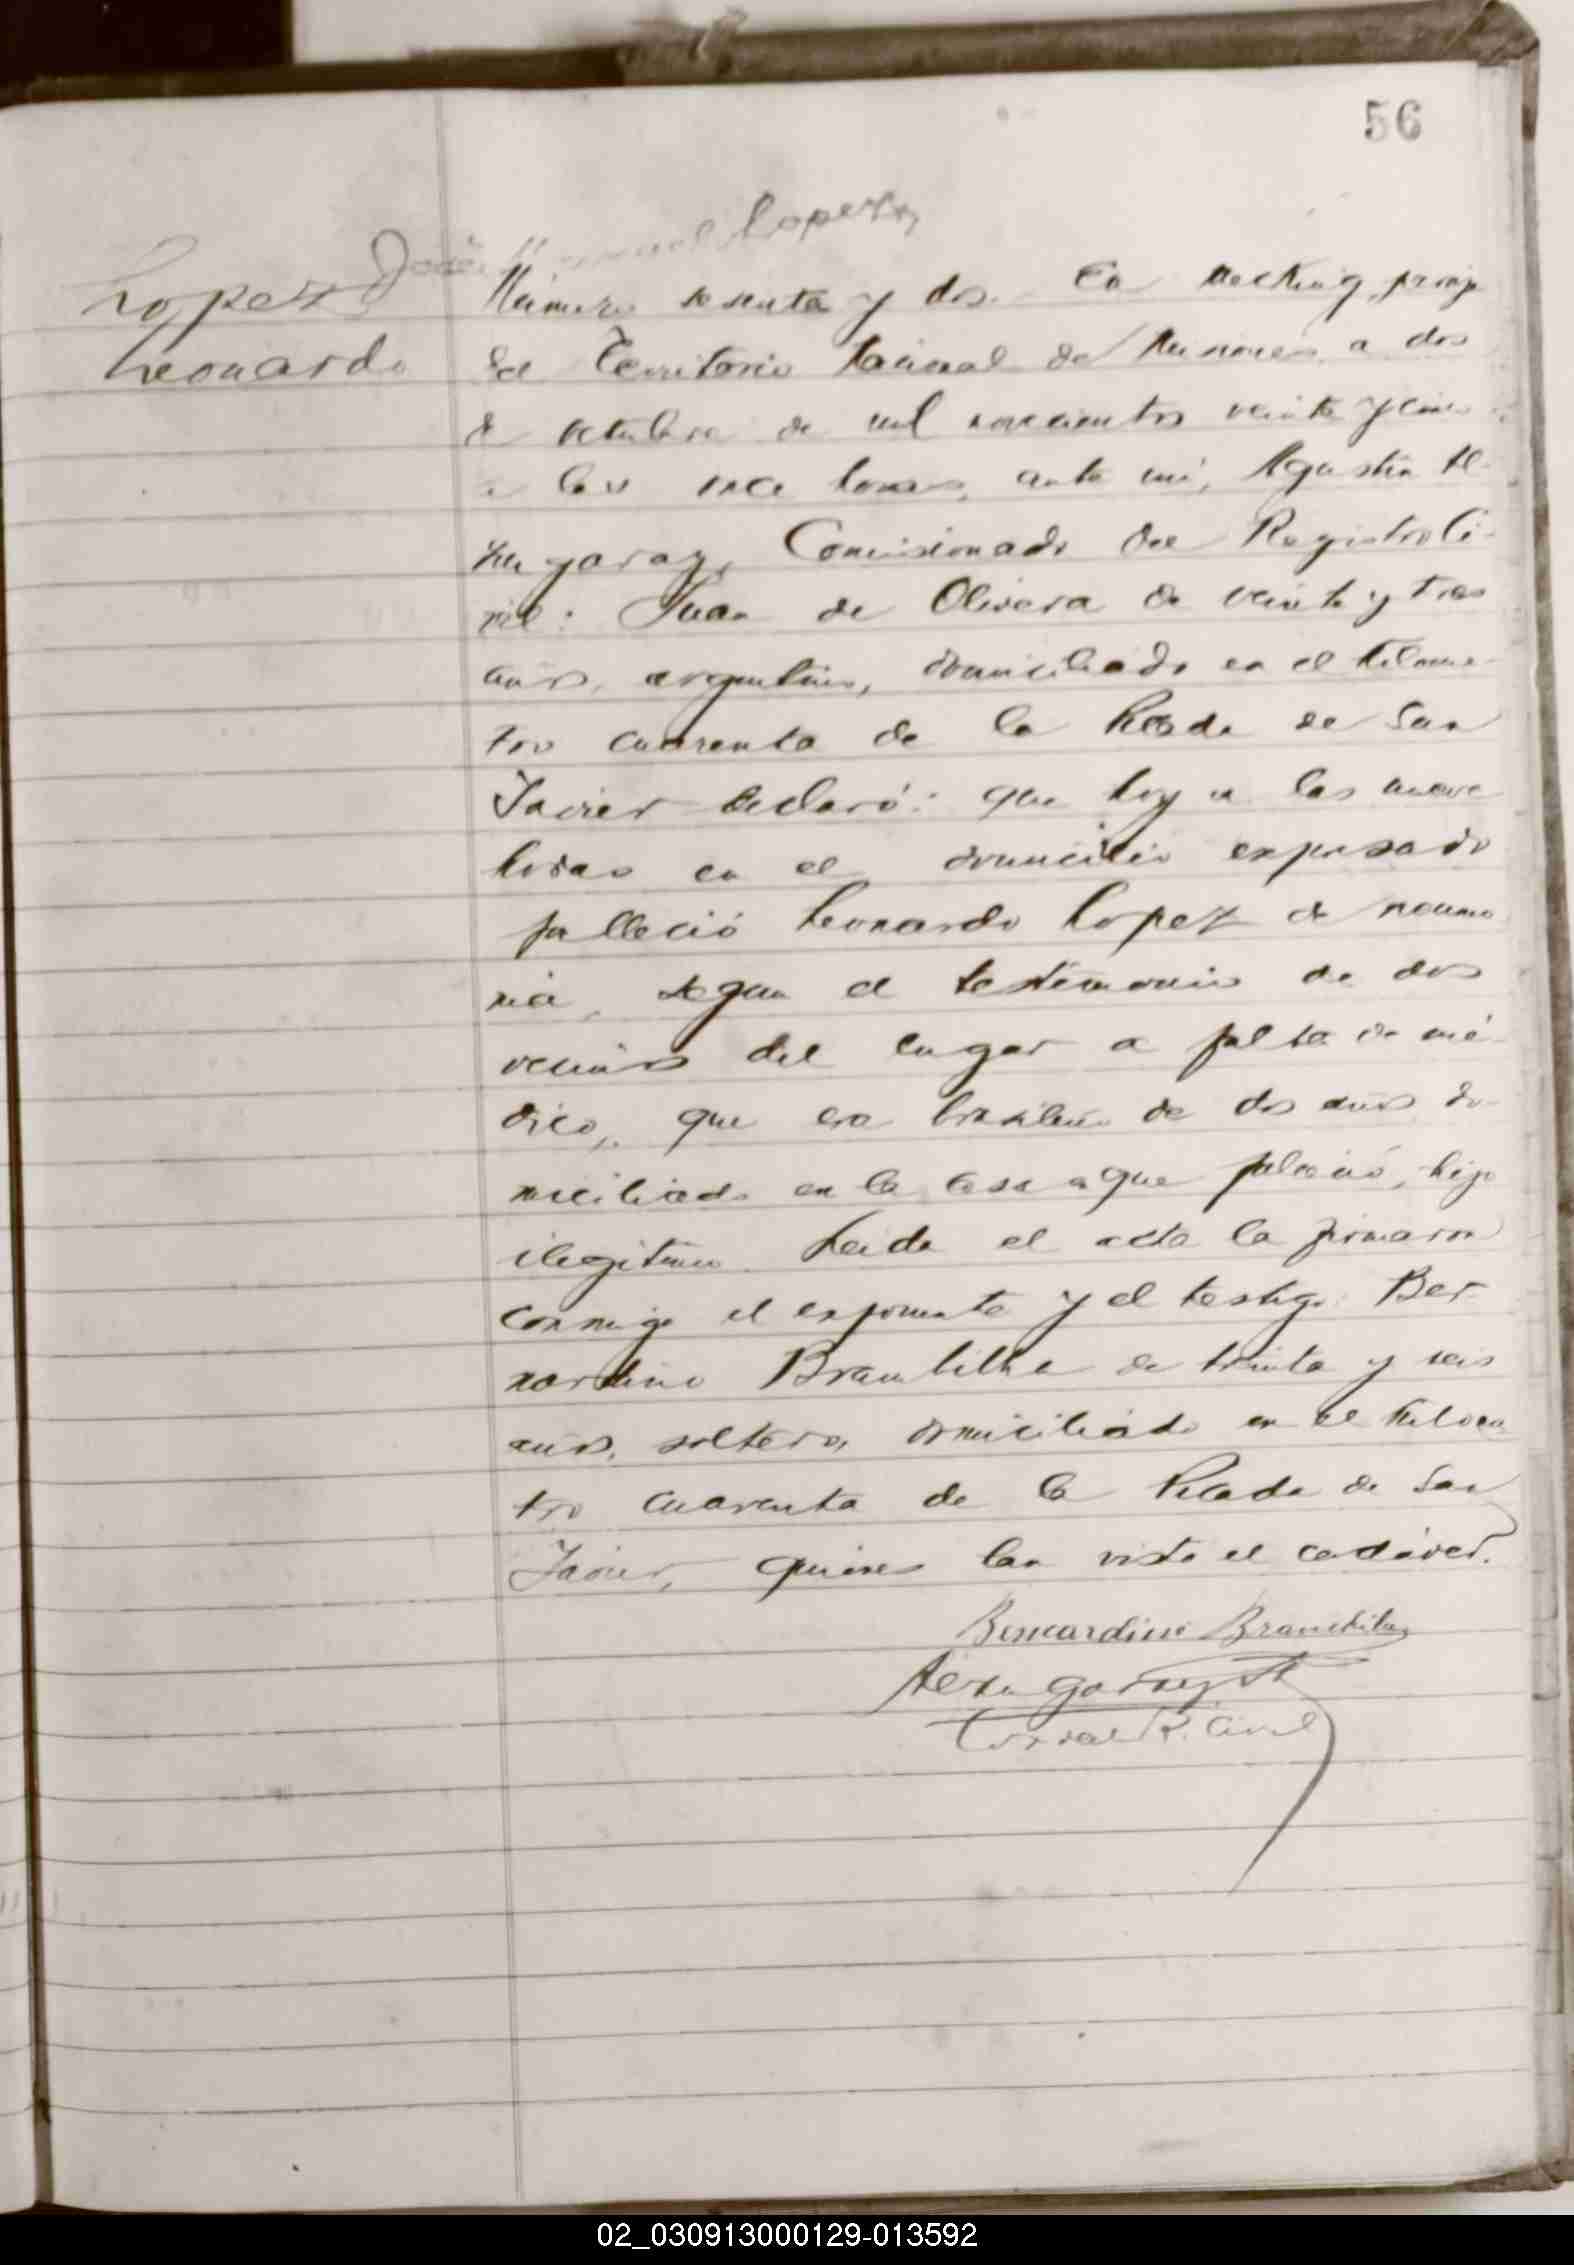 56
José Lopez
Lopez
Leonardo
Número sesenta y dos. En Mecking,
del Territorio Nacional de Misiones a dos
de octubre de mil novecientos veinte y cinco
a las once horas, ante mí, Agustín Al-
zugaray, Comisionado del Registro Ci-
vil: Juan de Olivera de veinte y tres
años, argentino, domiciliado en el kilome-
tro cuarenta de la Picada de San
Javier declaró: que hoy a las nueve
horas en el domicilio expresado
falleció Leonardo Lopez de neumo
nia, segun el testimonio de dos
vecinos del lugar a falta de mé-
dico, que era brasileño de dos años do-
miciliado en la casa que falleció, hijo
ilegitimo. Leida el acta la firmaron
conmigo el exponente y el testigo Ber-
nardino Brambilla de treinta y seis
años, soltero, domiciliado en el kilome
tro cuarenta de la Picada de San
Javier, quienes han visto el cadáver.
Bernardino Brambilla
Alzugaray
R. Civil
02_030913000129-013592